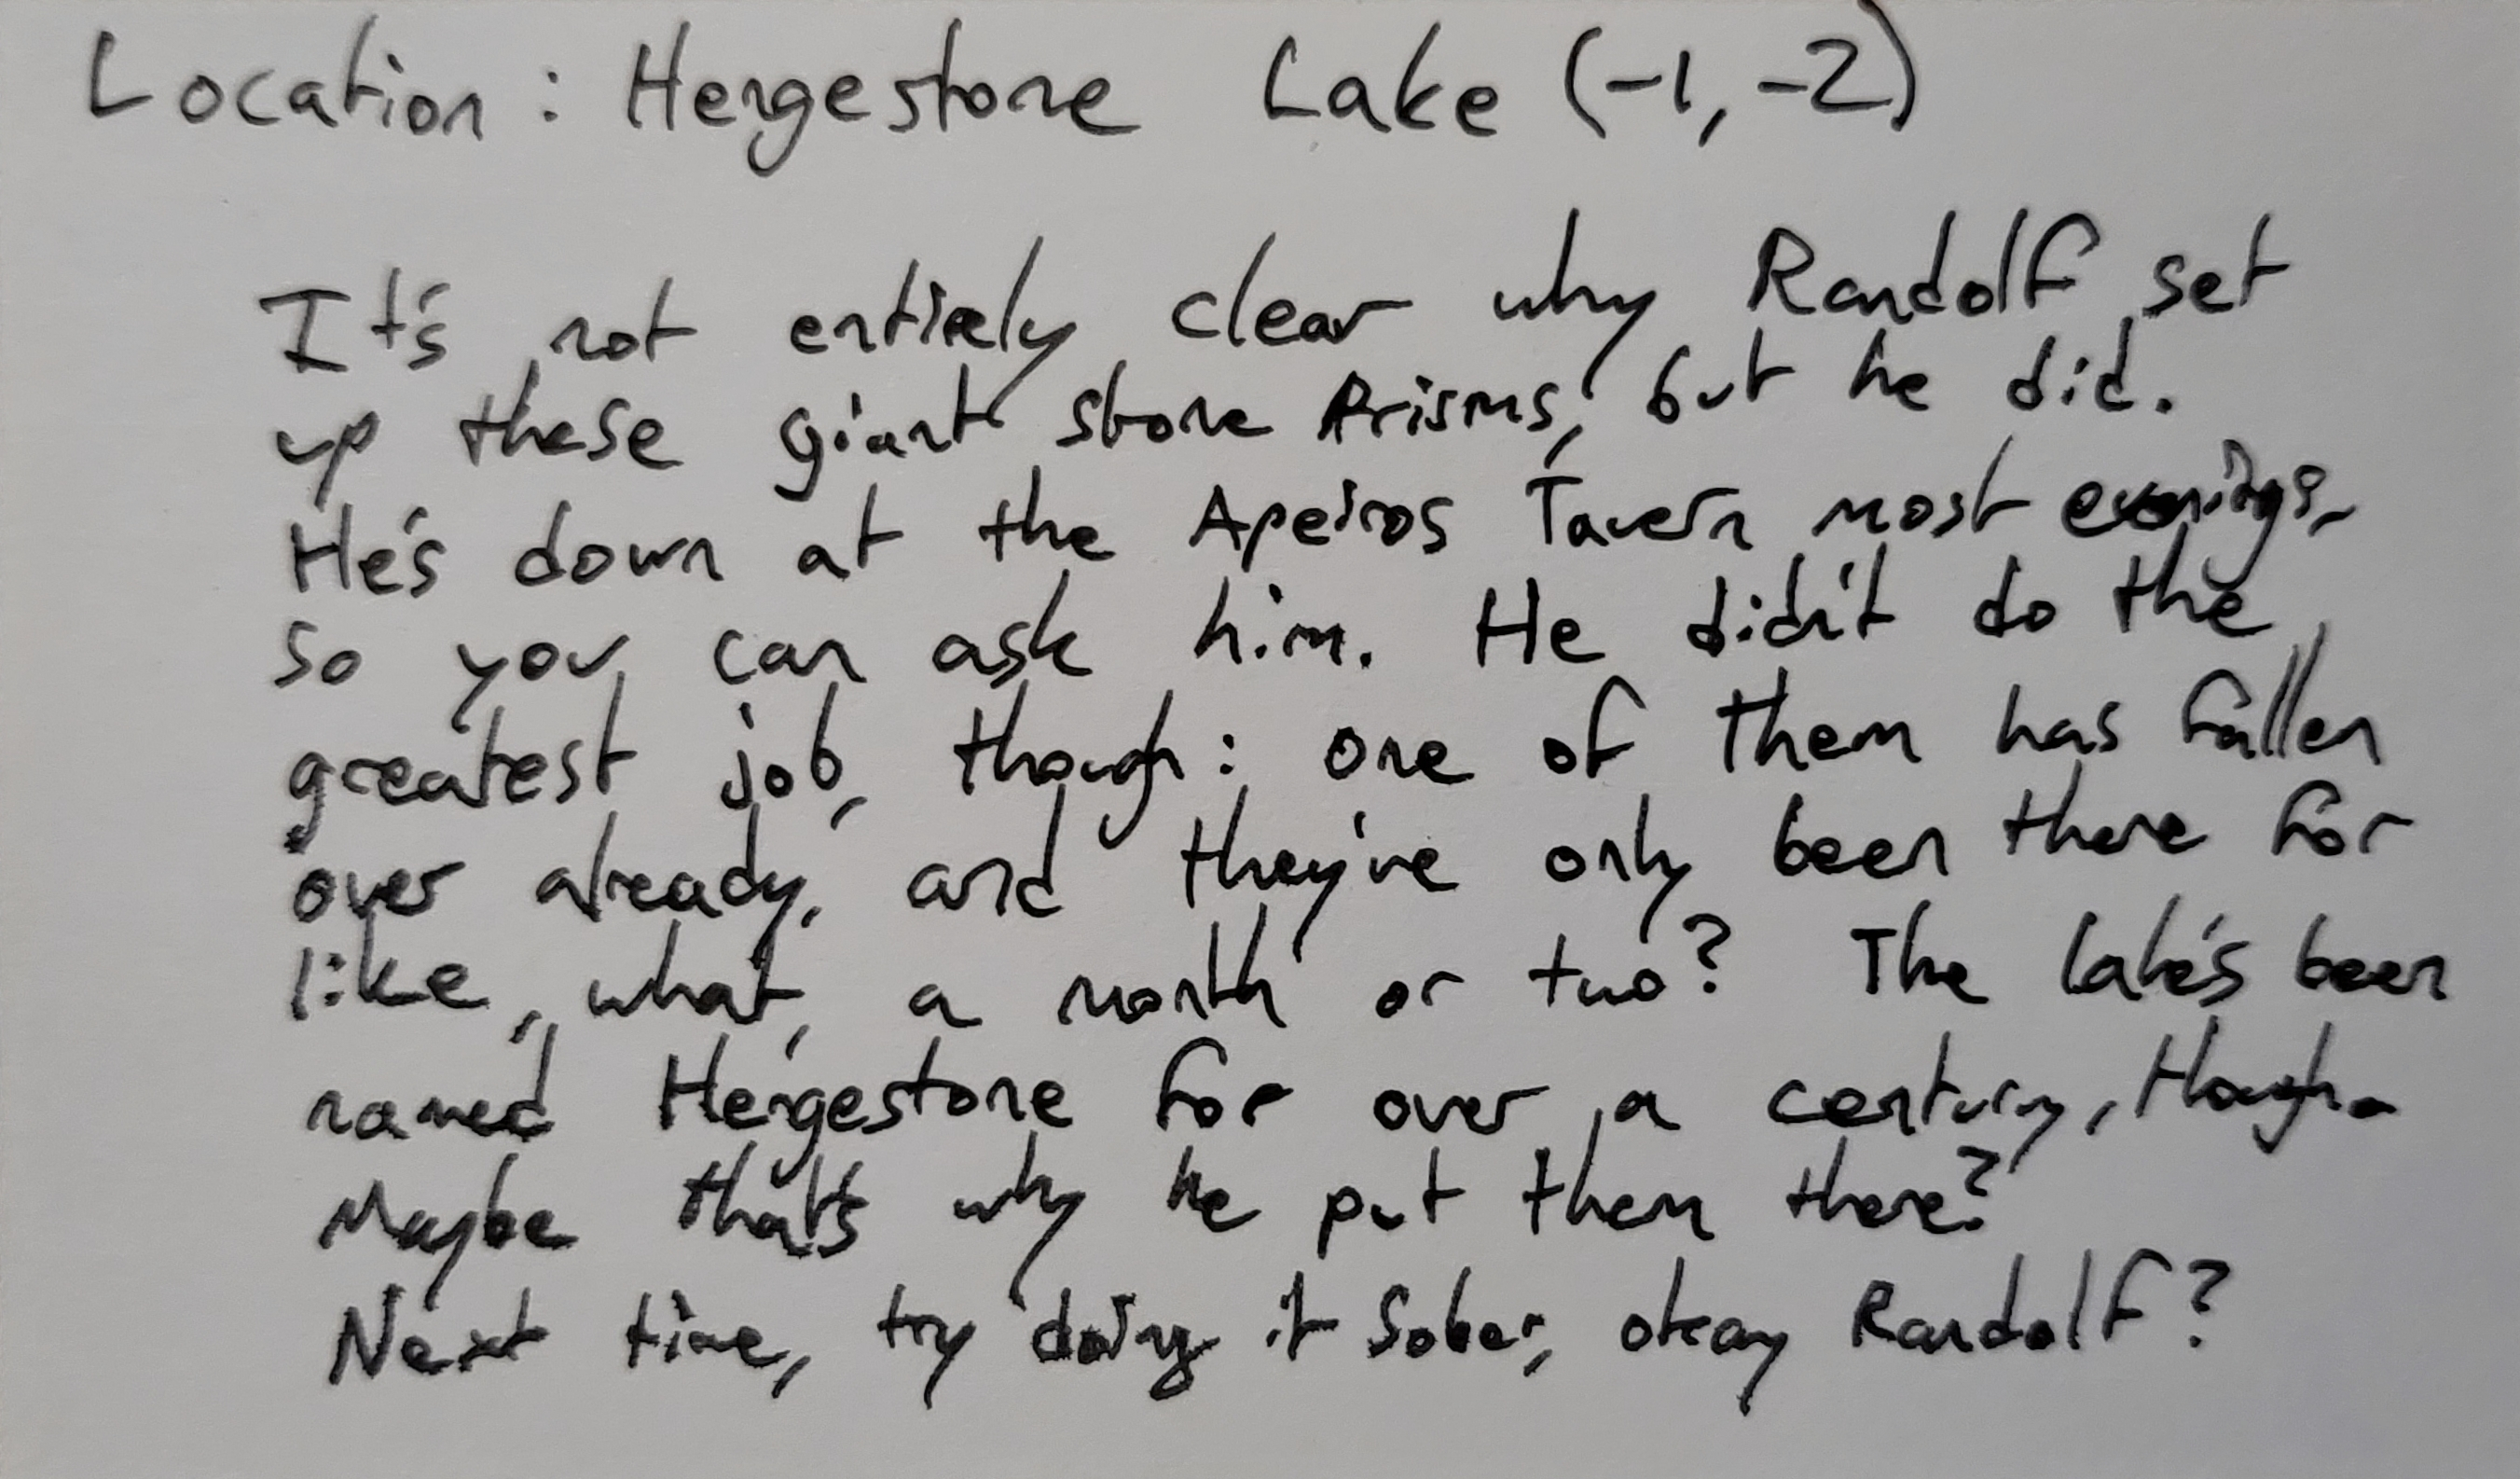 Location: Hengestone Lake (-1, -2)
It's not entirely clear why Randolf set
up these giant stone Prisms, but he did.
He's down at the Apeiros Tavern most evenings,
so you can ask him. He didn't do the
greatest job, though: one of them has fallen
over already, and they've only been there for
like, what, a month or two? The lake's been
named Hengestone for over a century, though.
Maybe that's why he put them there?
Next time, try doing it sober, okay Randolf?